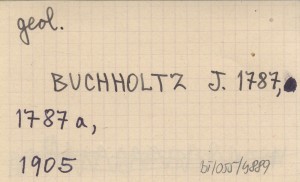 geol.
BUCHHOLTZ J. 1787,
1787a,
1905
bi/055/4889